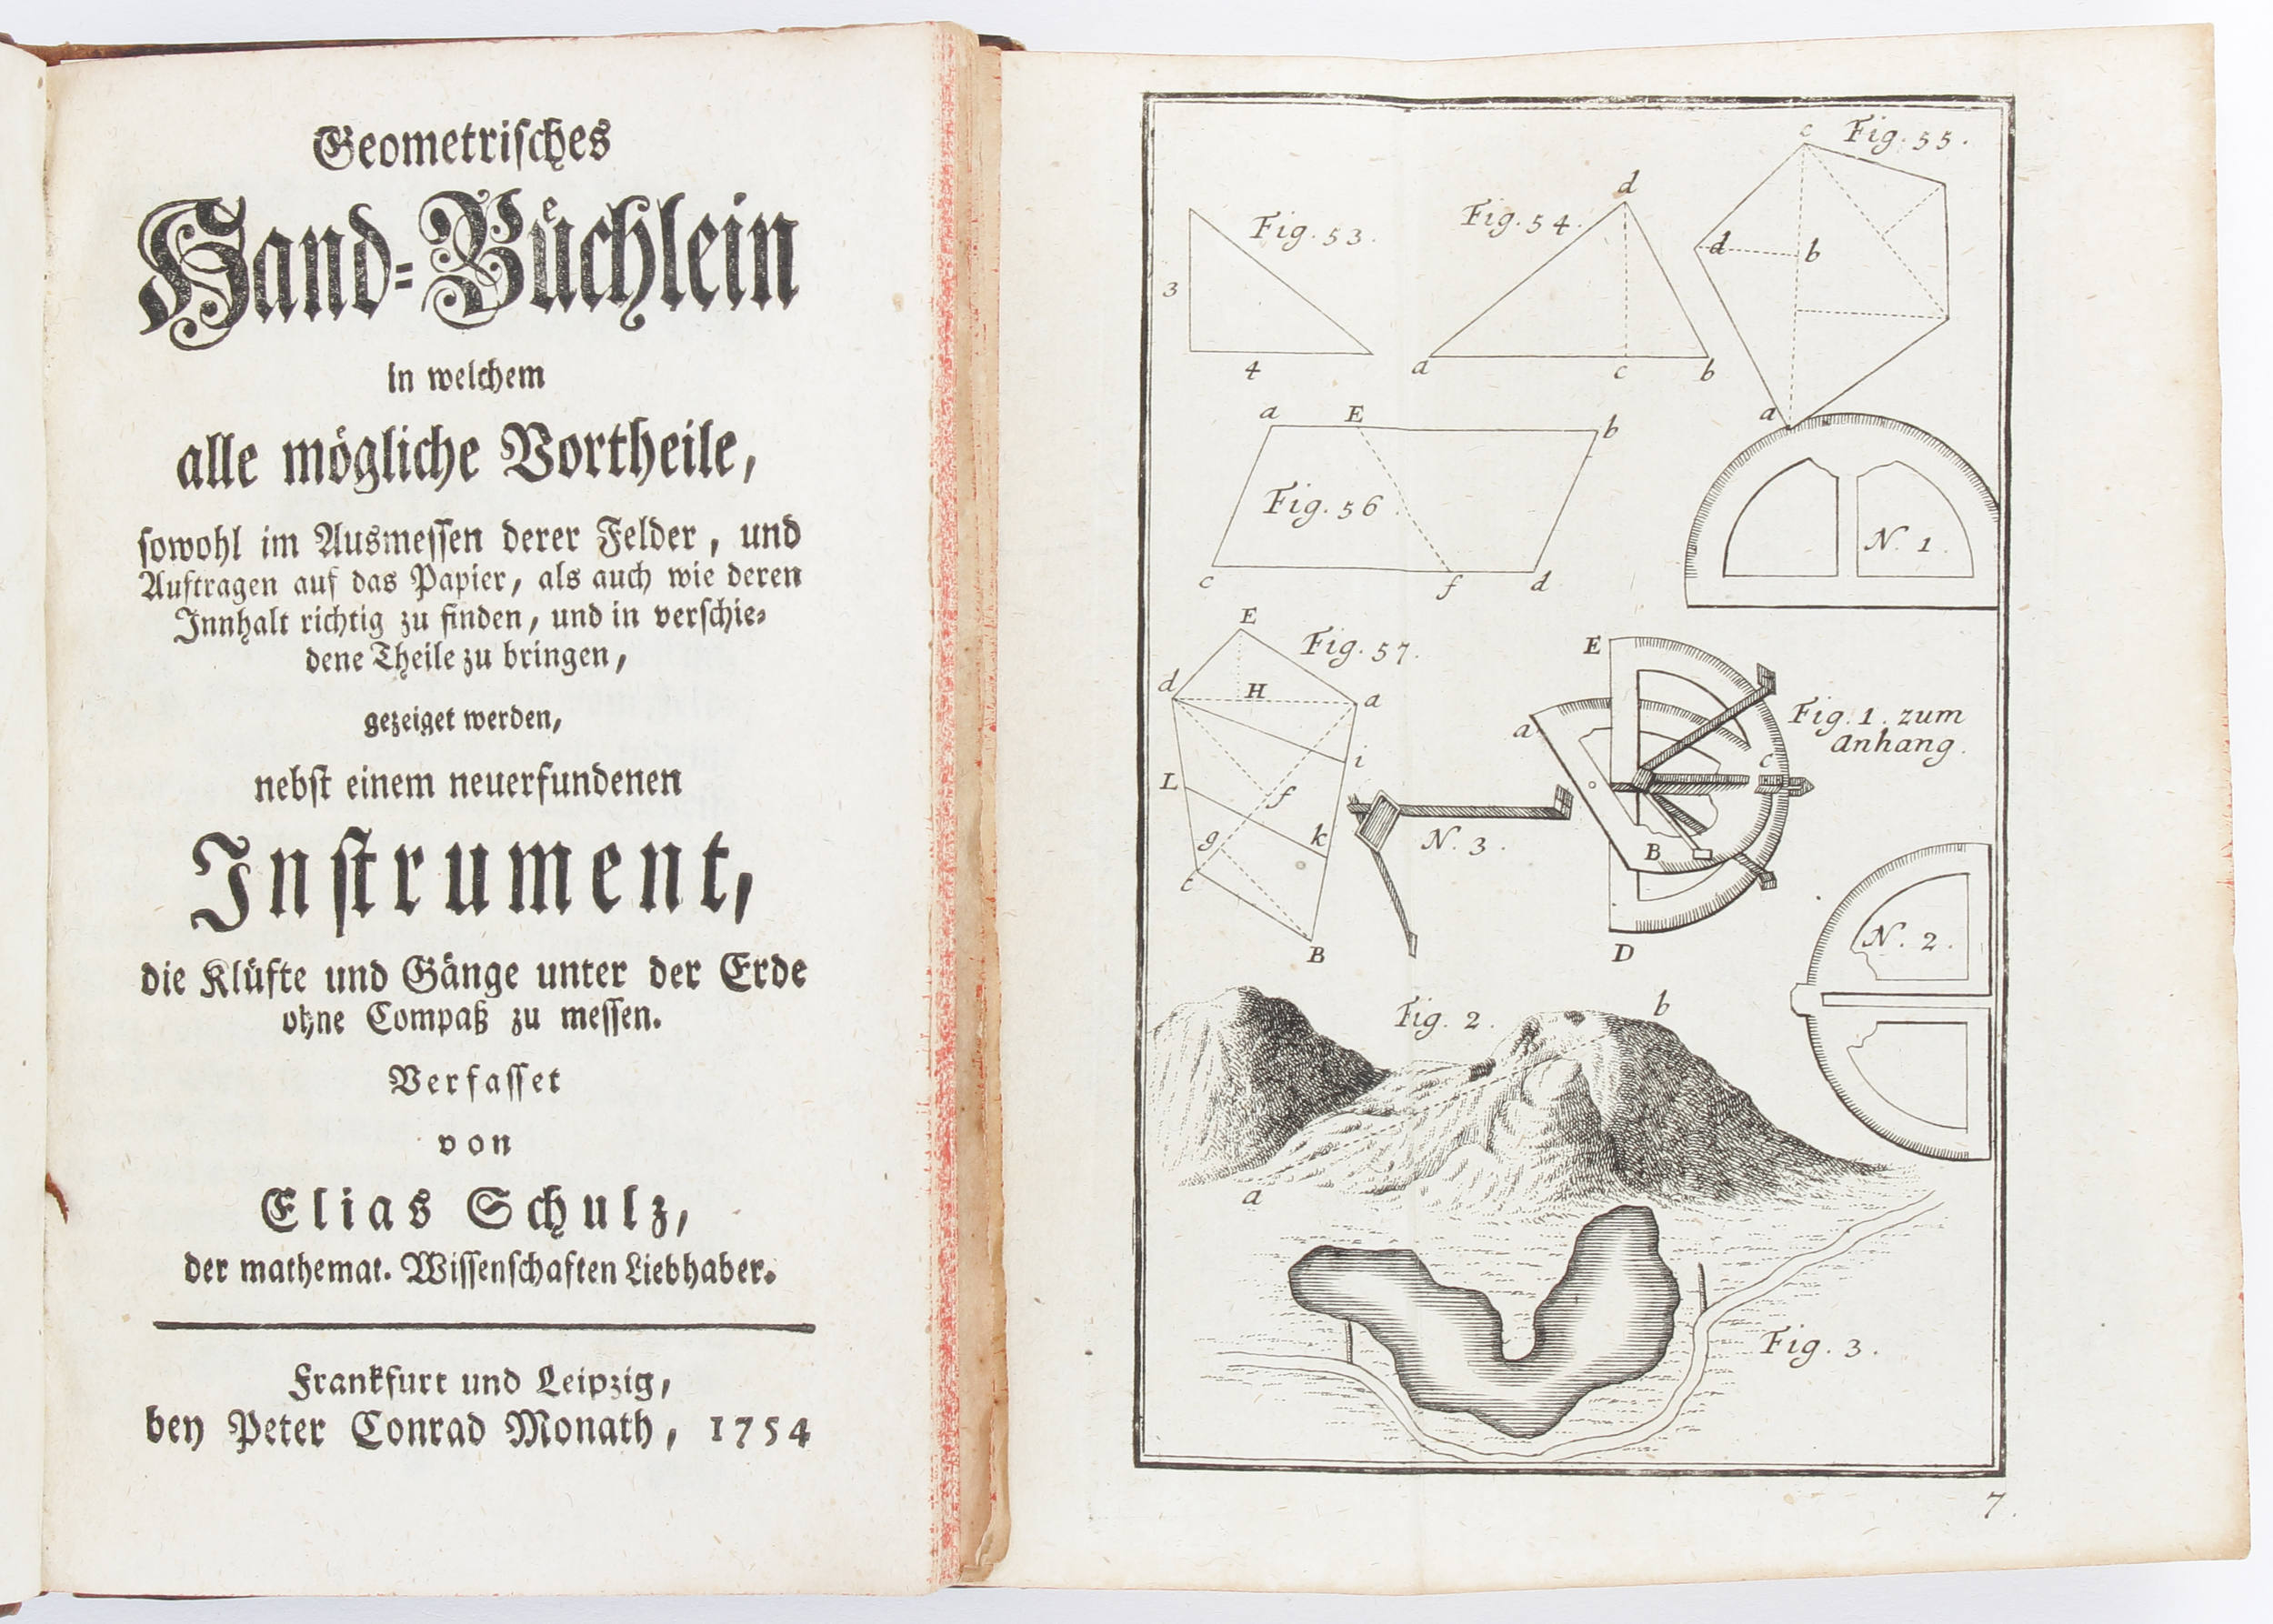 Geometriſches
Hand-Buͤchlein
in welchem
alle moͤgliche Vortheile,
ſowohl im Ausmeſſen derer Felder, und
Auftragen auf das Papier, als auch wie deren
Innhalt richtig zu finden, und in verſchie-
dene Theile zu bringen,
gezeiget werden,
nebſt einem neuerfundenen
Inſtrument,
die Kluͤfte und Gaͤnge unter der Erde
ohne Compaß zu meſſen.
Verfaſſet
von
Elias Schulz,
der mathemat. Wiſſenſchaften Liebhaber.
Frankfurt und Leipzig,
bey Peter Conrad Monath, 1754
c Fig. 55.
d b
a
Fig. 53.
3
4
Fig. 54.
d
a c b
a E b
Fig. 56.
c f d
N. 1.
E
Fig. 57.
d H a
i
L f
g k
c
B
N. 3.
E
a
Fig. 1. zum
anhang.
c
B
D
N. 2.
Fig. 2. b
a
Fig. 3.
7.